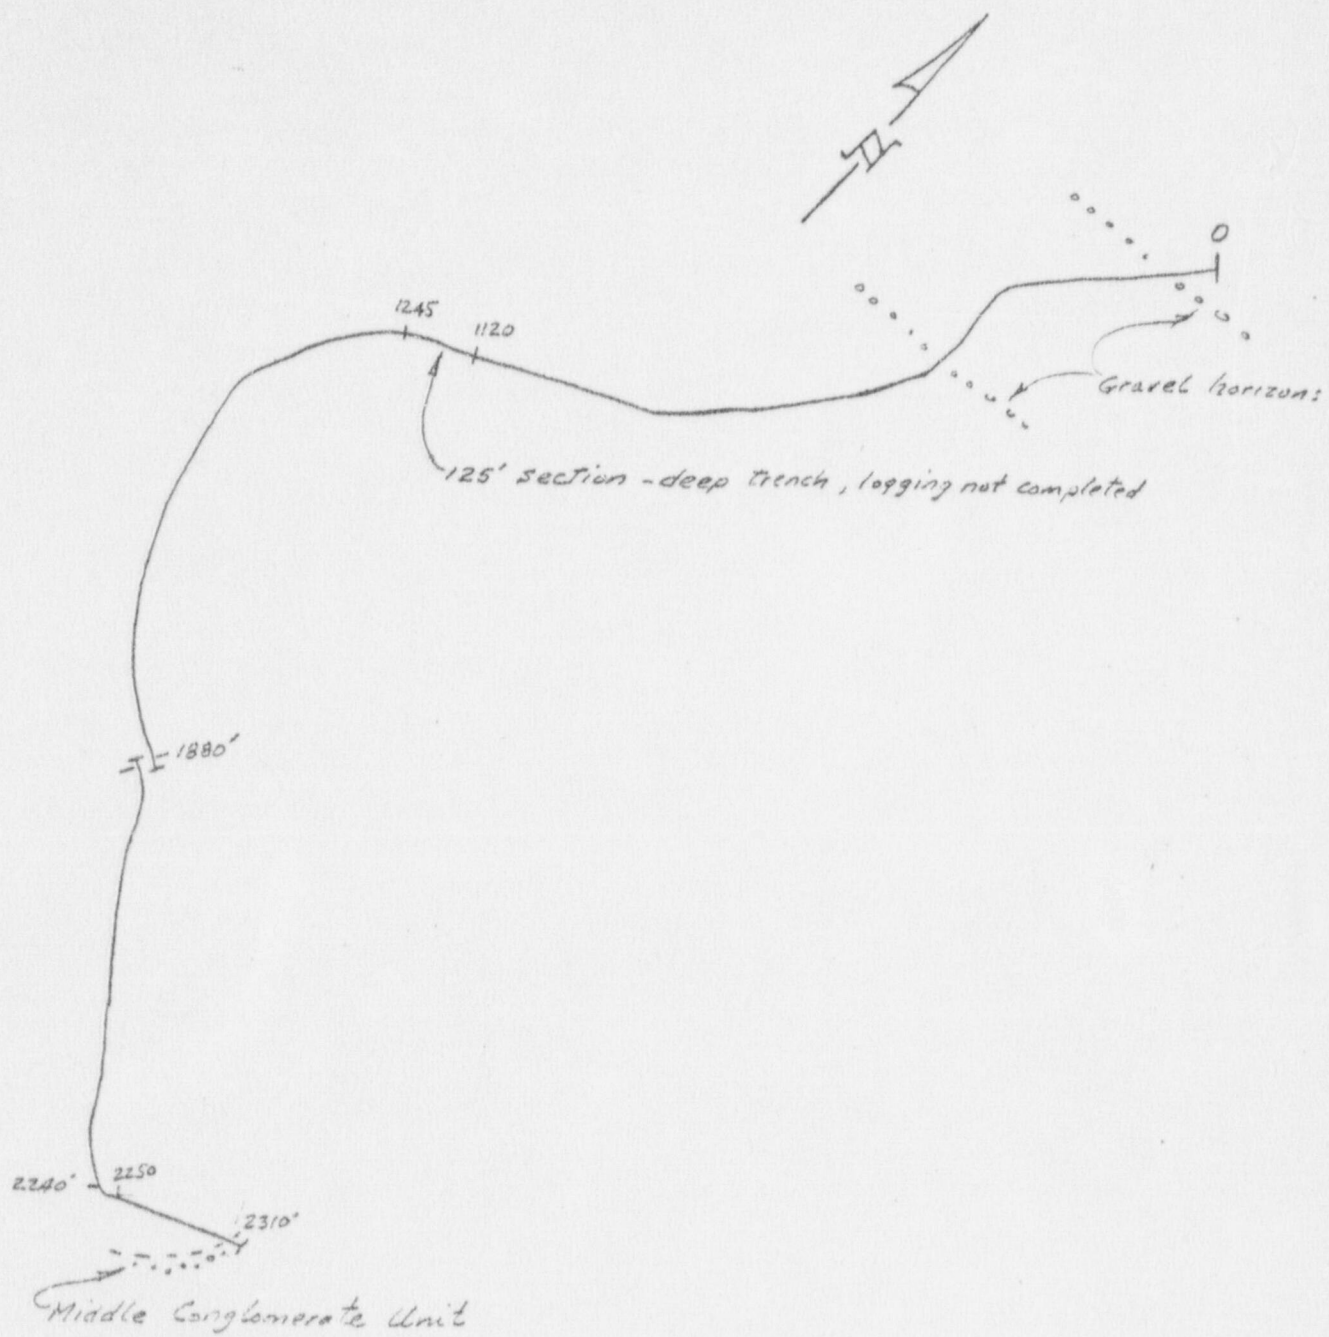 N
O
1245
1120
Gravel horizons
125' section - deep trench, logging not completed
1880'
2240'
2250
2310'
Middle Conglomerate Unit